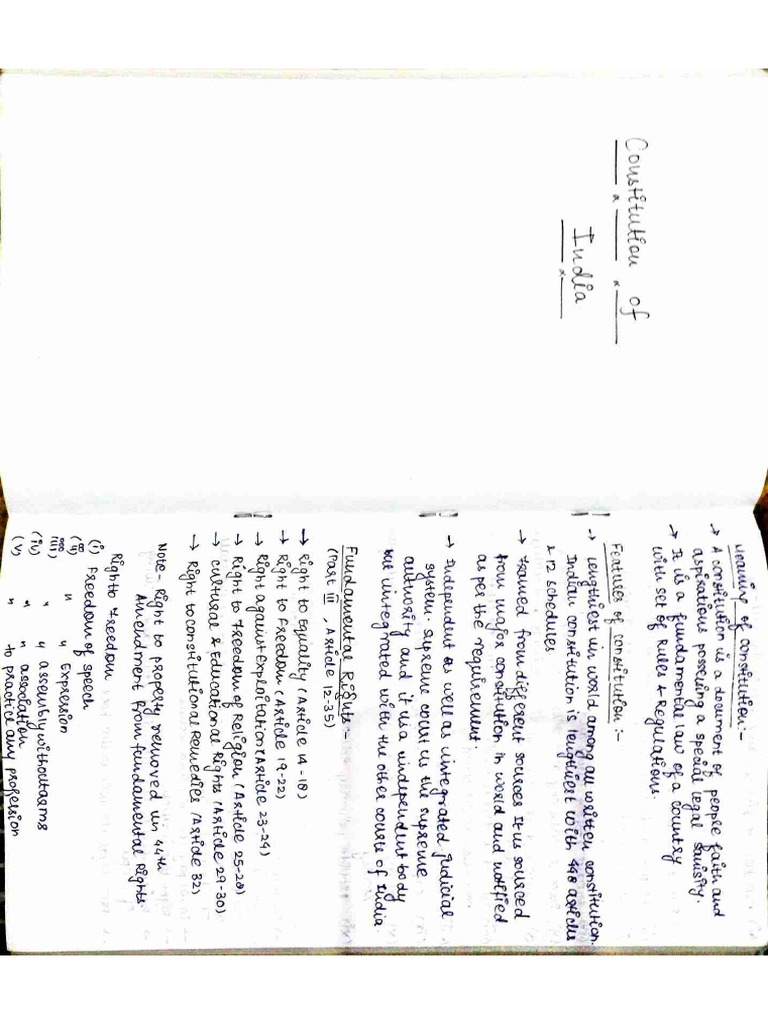 Constitution of
India
Meaning of constitution:-
→ A constitution is a document of people faith and
aspirations possesing a special legal sanctity.
→ It is a fundamental law of a country
with set of Rules & Regulations.
Features of constitution:-
→ Lengthiest in world among all written constitution.
Indian constitution is lengthiest with 448 articles
& 12 schedules
→ Framed from different sources It is sourced
from major constitution in world and notified
as per the requirement.
→ Independent as well as integrated judicial
system. Supreme court is the supreme
authority and it is a independent body
but integrated with the other courts of India.
Fundamental Rights:-
(Part III, Article 12-35)
→ Right to Equality (Article 14-18)
→ Right to Freedom (Article 19-22)
→ Right against Exploitation (Article 23-24)
→ Right to Freedom of Religion (Article 25-28)
→ cultural & Educational Rights (Article 29-30)
→ Right to constitutional Remedies (Article 32)
Note- Right to property removed in 44th
Amendment from fundamental Rights.
Right to Freedom
(i) Freedom of speech
(ii) " " Expression
(iii) " " assembly without arms
(iv) " " association
(v) " to practice any profession